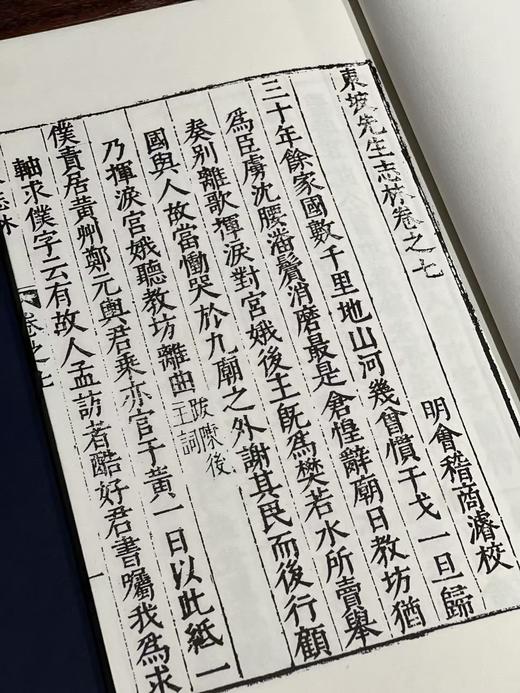 東坡先生志林卷之七
明會稽商濬校
三十年餘家國數千里地山河幾曾慣干戈一旦歸
爲臣虜沈腰潘鬢消磨最是倉惶辭廟日教坊猶
奏别離歌揮淚對宮娥後主旣爲樊若水所賣舉
國與人故當慟哭於九廟之外謝其民而後行顧
乃揮淚官娥聽教坊離曲
跋陳後
王詞
僕責居黄州鄭元輿君乗亦官于黄一日以此紙一
軸求僕字云有故人孟訪者酷好君書囑我爲求
志林
卷之七
一